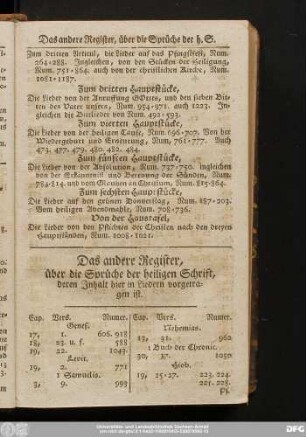 Das andere Register, über die Sprüche der h. S.
Zum dritten Articul, die Lieder auf das Pfingstfest, Num.
264-288. Ingleichen, von den Stücken der Heiligung,
Num. 751-864. auch von der christlichen Kirche, Num.
1081-1187.
Zum dritten Hauptstücke,
Die Lieder von der Anruffung GOttes, und den sieben Bit-
ten des Vater unsers, Num. 954-971. auch 1223. In-
gleichen die Bittlieder von Num. 492-593.
Zum vierten Hauptstücke,
Die Lieder von der heiligen Taufe, Num. 696-707. Von der
Wiedergeburt und Erneurung, Num. 761-777. Auch
473. 477. 479. 480. 482. 484.
Zum fünften Hauptstücke,
Die Lieder von der Absolution, Num. 737-750. ingleichen
von der Erkänntniß und Bereuung der Sünden, Num.
784-814. und vom Glauben an Christum, Num. 815-864.
Zum sechsten Hauptstücke,
Die Lieder auf den grünen Donnerstag, Num. 187-203.
Vom heiligen Abendmahle, Num. 708-736.
Von der Haustafel,
Die Lieder von den Pflichten der Christen nach den dreyen
Hauptständen, Num. 1008-1021.
Das andere Register,
über die Sprüche der heiligen Schrift,
deren Inhalt hier in Liedern vorgetra-
gen ist.
Cap. Vers. Numer.
Genes.
17, 1. 606. 918
18, 23. u. f. 588
19, 22. 1043.
Levit.
19, 2. 771
1 Samuelis.
3, 9. 993
Cap. Vers. Numer.
Nehemias.
13, 31. 962
1 Buch der Chronic.
30, 17. 1030
Hiob.
19, 25-27. 223. 224.
225. 228.
Ps.